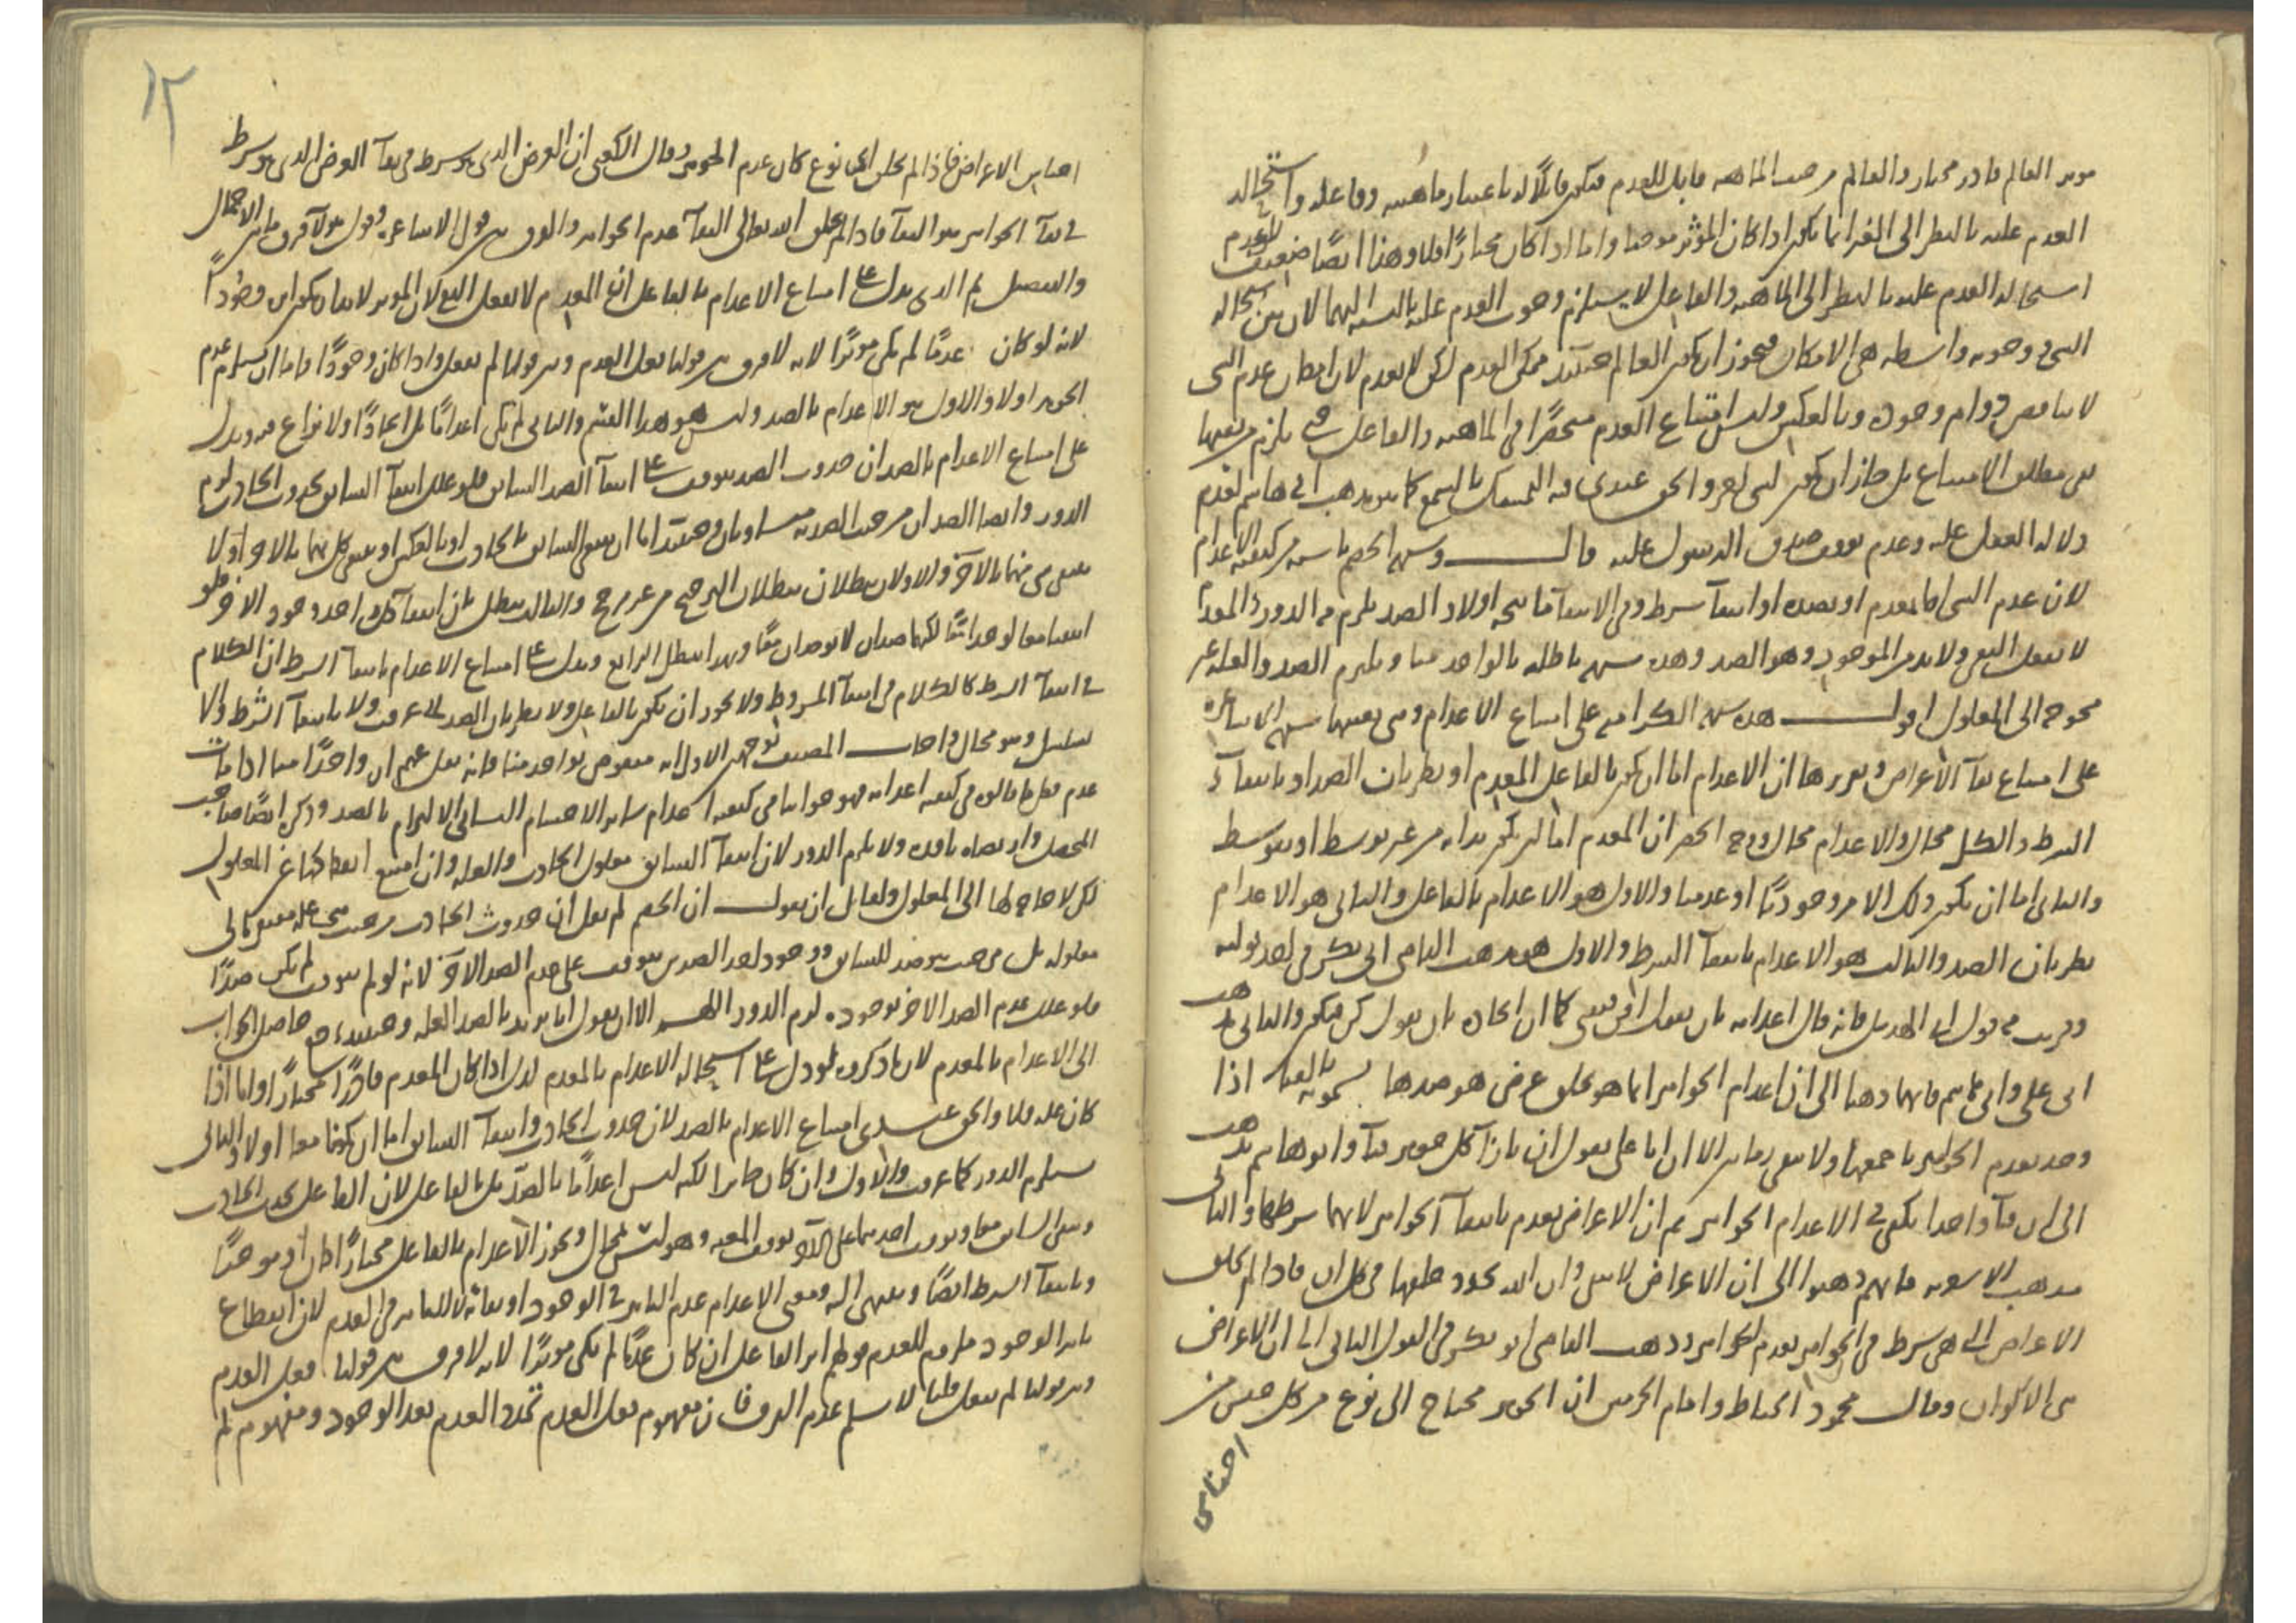 موثر العالم قادر مختار والعالم من حيث الماهية قابل للعدم فيكون قابلا له باعتبار ماهيته وفاعله واستحالة
العدم عليه بالنظر الى الغير انما يكون اذا كان المؤثر موجبا واما اذا كان مختارا فلا وهذا ايضا ضعيف لان عدم
استحالة العدم عليه بالنظر الى الماهية والفاعل لا يستلزم وجوب العدم عليه بالنسبة اليهما لان بين استحالة
الشي ووجوبه واسطة هي الامكان فيجوز ان يكون العالم حينئذ ممكن العدم لكن لا يعدم لان امكان عدم الشي
لا يناقض دوام وجوده وبالعكس وليس امتناع العدم منحصرا في الماهية والفاعل حتى يلزم من نفيهما
نفي مطلق الامتناع بل جاز ان يكون لشي اخر والحق عندي فيه التمسك بالسمع كما هو مذهب ابي هاشم لعدم
دلالة العقل عليه وعدم توقف صدق الرسول عليه قال وشبهة الخصم ناشية من كيفية الاعدام
لان عدم الشي اما بمعدم او بضده او انتفاء شرط وفي الانتفاء ما سبجه اولا والضد يلزم منه الدور والمعدم
لا يفعل النفي ولا بد من الموجود وهو الضد وهذه شبهة باطلة بالواحد منا ويلتزم الضد والعلة غير
محوجة الى المعلول اقول هذه شبهة الكرامية على امتناع الاعدام وهي بعينها شبهة الاشاعرة
على امتناع بقاء الاعراض وتقريرها ان الاعدام اما ان يكون بالفاعل المعدم او بطريان الضد او بانتفاء
الشرط والكل محال والاعدام محال ووجه الحصر ان المعدم اما ان يكون بذاته من غير توسط او بتوسط
والثاني اما ان يكون ذلك الامر وجوديا او عدميا والاول هو الاعدام بالفاعل والثاني هو الاعدام
بطريان الضد والثالث هو الاعدام بانتفاء الشرط والاول هو مذهب القاضي ابي بكر في احد قوليه
وقريب من قول ابي الهذيل فانه قال اعدامه بان يقول افن فيفنى كما ان ايجاده بان يقول كن فيكون والثاني مذهب
ابي علي وابي هاشم فانهما ذهبا الى ان اعدام الجواهر انما هو بخلق عرض هو ضدها يسمونه بالفناء اذا
وجد يعدم الجواهر باجمعها ولا يبقى زمانين الا ان ابا علي يقول ان بازاء كل جوهر فناء وابو هاشم يذهب
الى ان فناء واحدا يكفي في الاعدام الجواهر ثم ان الاعراض يعدم بانتفاء الجواهر لانها شرطها والثالث
مذهب الاشعرية فانهم ذهبوا الى ان الاعراض لا تبقى وان الله يجدد خلقها في كل ان فاذا لم يخلق
الاعراض التي هي شرط في الجواهر يعدم الجواهر وذهب القاضي ابو بكر في القول الثاني الى ان الاعراض
هي الاكوان وقال محمود الخياط وامام الحرمين ان الجوهر محتاج الى نوع من كل جنس من
اجناس
١٢
اجناس الاعراض فاذا لم يخلق اي نوع كان عدم الجوهر وقال الكعبي ان العرض الذي هو شرط في بقاء العرض الذي هو شرط
في بقاء الجواهر هو البقاء فاذا لم يخلق الله تعالى البقاء عدم الجواهر والفرق بين قول الاشاعرة وقول هولاء فرق ما بين الاجمال
والتفصيل ثم الذي يدل على امتناع الاعدام بالفاعل ان المعدم لا يفعل النفي لان الموثر لا بد ان يكون اثره وجودا
لانه لو كان عدما لم يكن موثرا لانه لا فرق بين قولنا فعل العدم وبين قولنا لم يفعل واذا كان وجودا فاما ان يستلزم عدم
الجوهر اولا والاول هو الاعدام بالضد وليس هو هذا القسم والثاني لم يكن اعداما بل ايجادا ولا نزاع فيه ويدل
على امتناع الاعدام بالضد ان حدوث الضد يتوقف على انتفاء الضد السابق فلو علل انتفاء السابق بحدوث الحادث لزم
الدور وايضا الضدان من حيث الضدية متساويان وحينئذ اما ان ينتفي السابق بالحادث او بالعكس او ينتفي كل منهما بالاخر اولا
ينتفي شي منهما بالاخر والاولان يبطلان ببطلان الترجيح من غير مرجح والثالث يبطل بان انتفاء كل واحد وجود الاخر فلو
انتفيا معا لوجدا معا لكنهما ضدان لا يوجدان معا وبهذا يبطل الرابع ويدل على امتناع الاعدام بانتفاء الشرط ان الكلام
في انتفاء الشرط كالكلام في انتفاء المشروط ولا يجوز ان يكون بالفاعل ولا بطريان الضد لما عرفت ولا بانتفاء الشرط والا
تسلسل وهو محال واجاب المصنف بوجهين الاول انه منقوض بواحد منا فانه يعقل عنهم ان واحدا منا اذا مات
عدم فكل ما قالوه في كيفية اعدامه فهو جوابنا في كيفية اعدام ساير الاجسام الثاني الالتزام بالضد وذكره ايضا صاحب
المحصل وارتضاه ناقده ولا يلزم الدور لان انتفاء السابق معلول الحادث والعلة وان امتنع انفكاكها عن المعلول
لكن لا حاجة لها الى المعلول ولقايل ان يقول ان الخصم لم يقل ان حدوث الحادث من حيث هي علة مفتقر الى
معلوله بل من حيث هو ضد للسابق ووجود احد الضدين يتوقف على عدم الضد الاخر لانه لو لم يتوقف لم يكن ضدا
فلو علل عدم الضد الاخر بوجوده لزم الدور اللهم الا ان يقول انا نريد بالضد العلة وحينئذ يرجع حاصل الجواب
الى الاعدام بالمعدم لان ما ذكروه لو دل على استحالة الاعدام بالمعدم لدل اذا كان المعدم قادرا مختارا واما اذا
كان علة فلا والحق عندي امتناع الاعدام بالضد لان حدوث الحادث وانتفاء السابق اما ان يكونا معا اولا والثاني
يستلزم الدور كما عرفت والاول وان كان جايزا لكنه ليس اعداما بالضد بل بالفاعل لان الفاعل يحدث الحادث
وينفي السابق معا وتوقف احدهما على الاخر توقف المعية وهو ليس بمحال ويجوز الاعدام بالفاعل مختارا كان او موجبا
وبانتفاء الشرط ايضا وينتهي اليه ومعنى الاعدام عدم التاثير في الوجود او بقائه لا التاثير في العدم لان انقطاع
تاثير الوجود ملزوم للعدم وقولهم اثر الفاعل ان كان عدما لم يكن موثرا لانه لا فرق بين قولنا فعل العدم
وبين قولنا لم يفعل قلنا لا نسلم عدم الفرق فان مفهوم فعل العدم تجدد العدم بعد الوجود ومفهوم لم